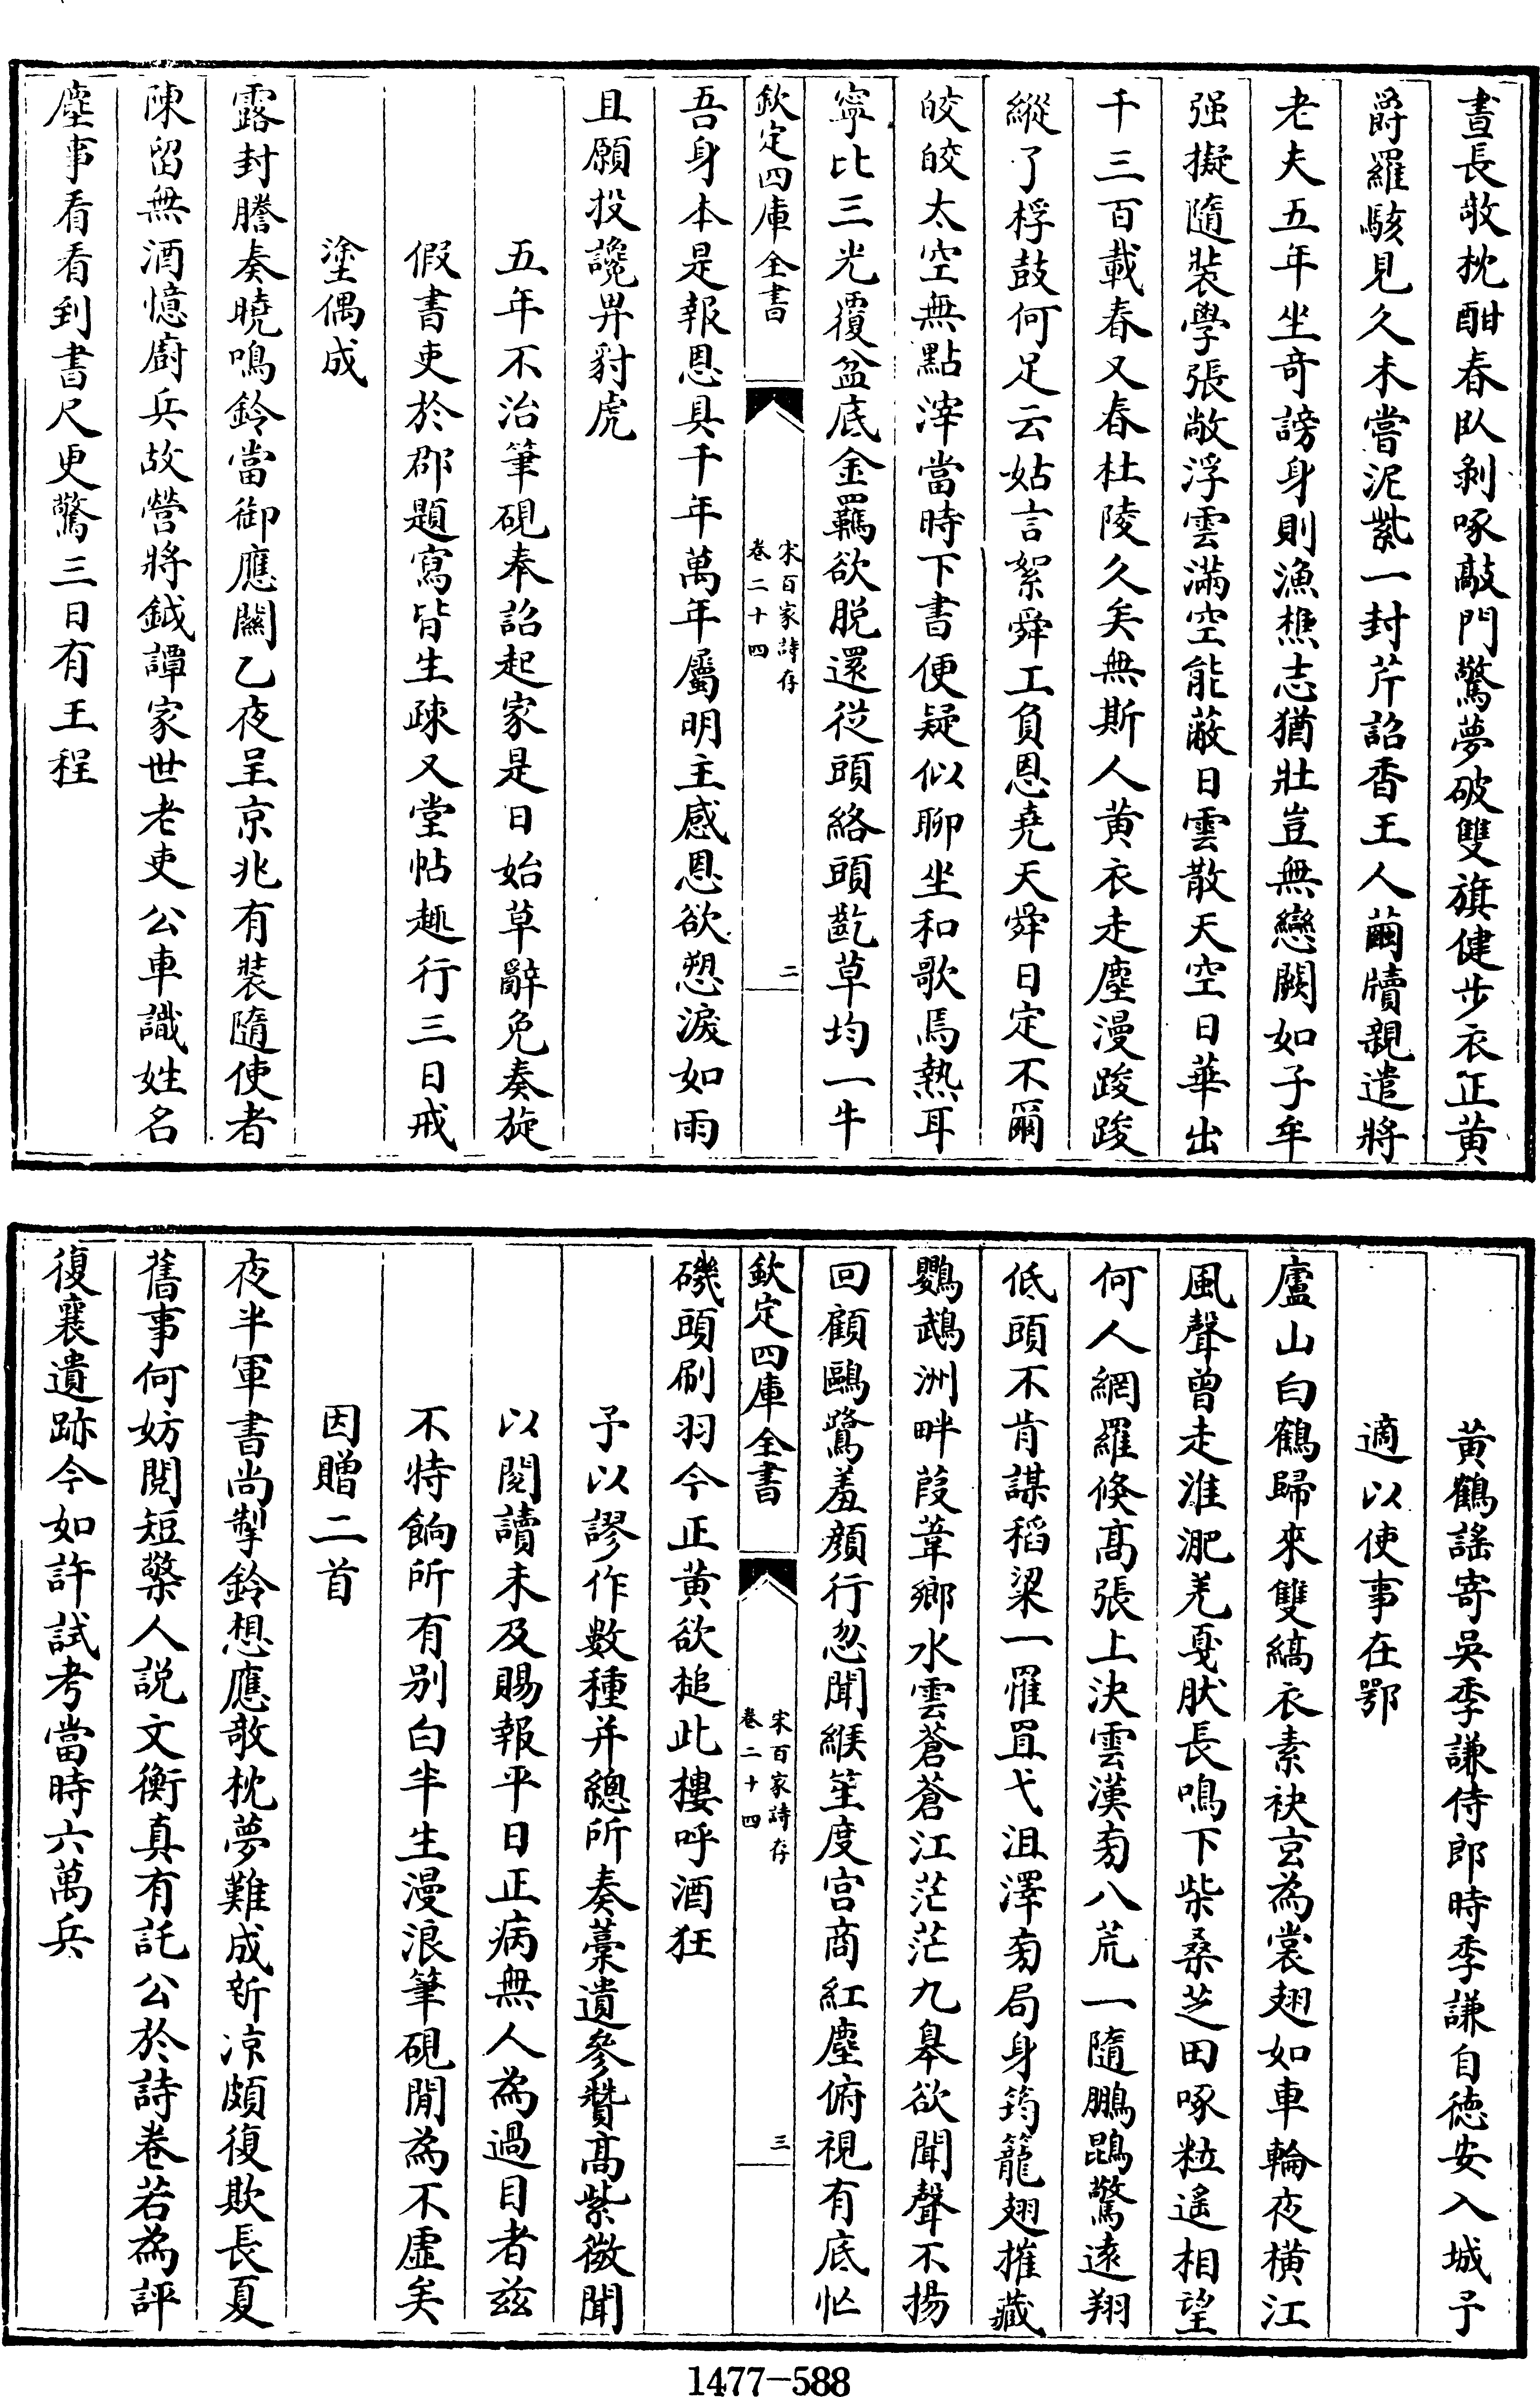 晝長攲枕酣春臥剝啄敲門驚夢破雙旗健步衣正黄
爵羅駭見久未嘗泥紫一封芹詔香王人繭牘親遣將
老夫五年坐奇謗身則漁樵志猶壯豈無戀闕如子牟
强擬隨裝學張敞浮雲滿空能蔽日雲散天空日華出
千三百載春又春杜陵久矣無斯人黄衣走塵漫踆踆
縱了桴鼓何足云姑言絮舜工負恩堯天舜日定不爾
皎皎太空無點滓當時下書便疑似聊坐和歌焉熱耳
寧比三光覆盆底金羈欲脱還從頭絡頭齕草均一牛
欽定四庫全書
宋百家詩存
卷二十四
二
吾身本是報恩具千年萬年屬明主感恩欲愬淚如雨
且願投讒畀豺虎
五年不治筆硯奉詔起家是日始草辭免奏旋
假書吏於郡題寫皆生疎又堂帖趣行三日戒
塗偶成
露封謄奏曉鳴鈴當御應關乙夜呈京兆有裝隨使者
陳留無酒憶廚兵故營將鉞譚家世老吏公車識姓名
塵事看看到書尺更驚三日有王程
黄鶴謡寄吳季謙侍郎時季謙自徳安入城予
適以使事在鄂
廬山白鶴歸來雙縞衣素袂玄為裳翅如車輪夜橫江
風聲曾走淮淝羌戛肰長鳴下柴桑芝田啄粒遥相望
何人網羅倐高張上決雲漢旁八荒一隨鵬鵾驚逺翔
低頭不肯謀稻粱一罹罝弋沮澤旁局身筠籠翅摧藏
鸚鵡洲畔葭葦鄉水雲蒼蒼江茫茫九臯欲聞聲不揚
回顧鷗鷺羞頡行忽聞緱笙度宫商紅塵俯視有底忙
欽定四庫全書
宋百家詩存
卷二十四
三
磯頭刷羽今正黄欲搥此樓呼酒狂
予以謬作數種并總所奏藁遺參贊髙紫微聞
以閱讀未及賜報平日正病無人為過目者兹
不特餉所有别白半生漫浪筆硯閒為不虚矣
因贈二首
夜半軍書尚掣鈴想應攲枕夢難成新凉頗復欺長夏
舊事何妨閲短檠人説文衡真有託公於詩卷若為評
復襄遺跡今如許試考當時六萬兵
1477-588